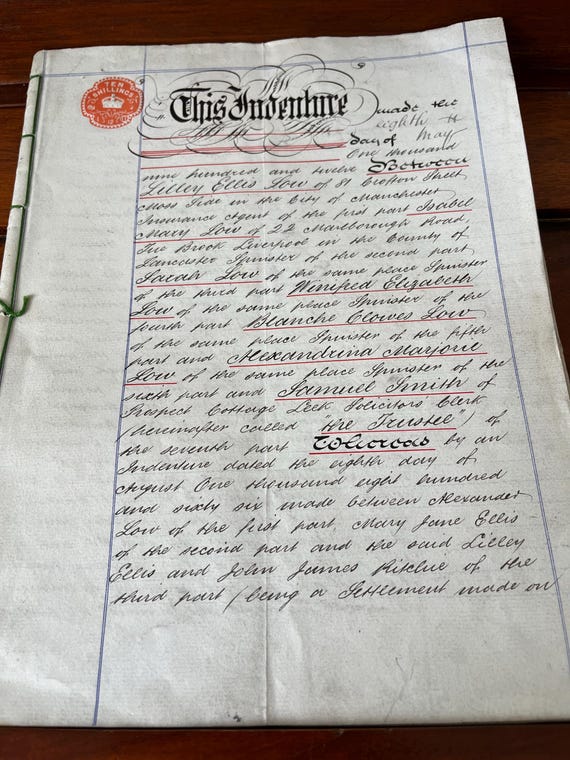 TEN SHILLINGS
This Indenture made the
eighth
day of May
One thousand
nine hundred and twelve Between
Lilley Ellis Low of 81 Crofton Street
Moss Side in the City of Manchester
Insurance Agent of the first part Isabel
Mary Low of 22 Marlborough Road,
Tue Brook Liverpool in the County of
Lancaster Spinster of the second part
Sarah Low of the same place Spinster
of the third part Winifred Elizabeth
Low of the same place Spinster of the
fourth part Blanche Clowes Low
of the same place Spinster of the fifth
part and Alexandrina Marjorie
Low of the same place Spinster of the
sixth part and Samuel Smith of
Prospect Cottage Leek Solicitors Clerk
(hereinafter called "the Trustee") of
the seventh part Whereas by an
Indenture dated the eighth day of
August One thousand eight hundred
and sixty six made between Alexander
Low of the first part, Mary Jane Ellis
of the second part and the said Lilley
Ellis and John James Ritchie of the
third part (being a Settlement made on